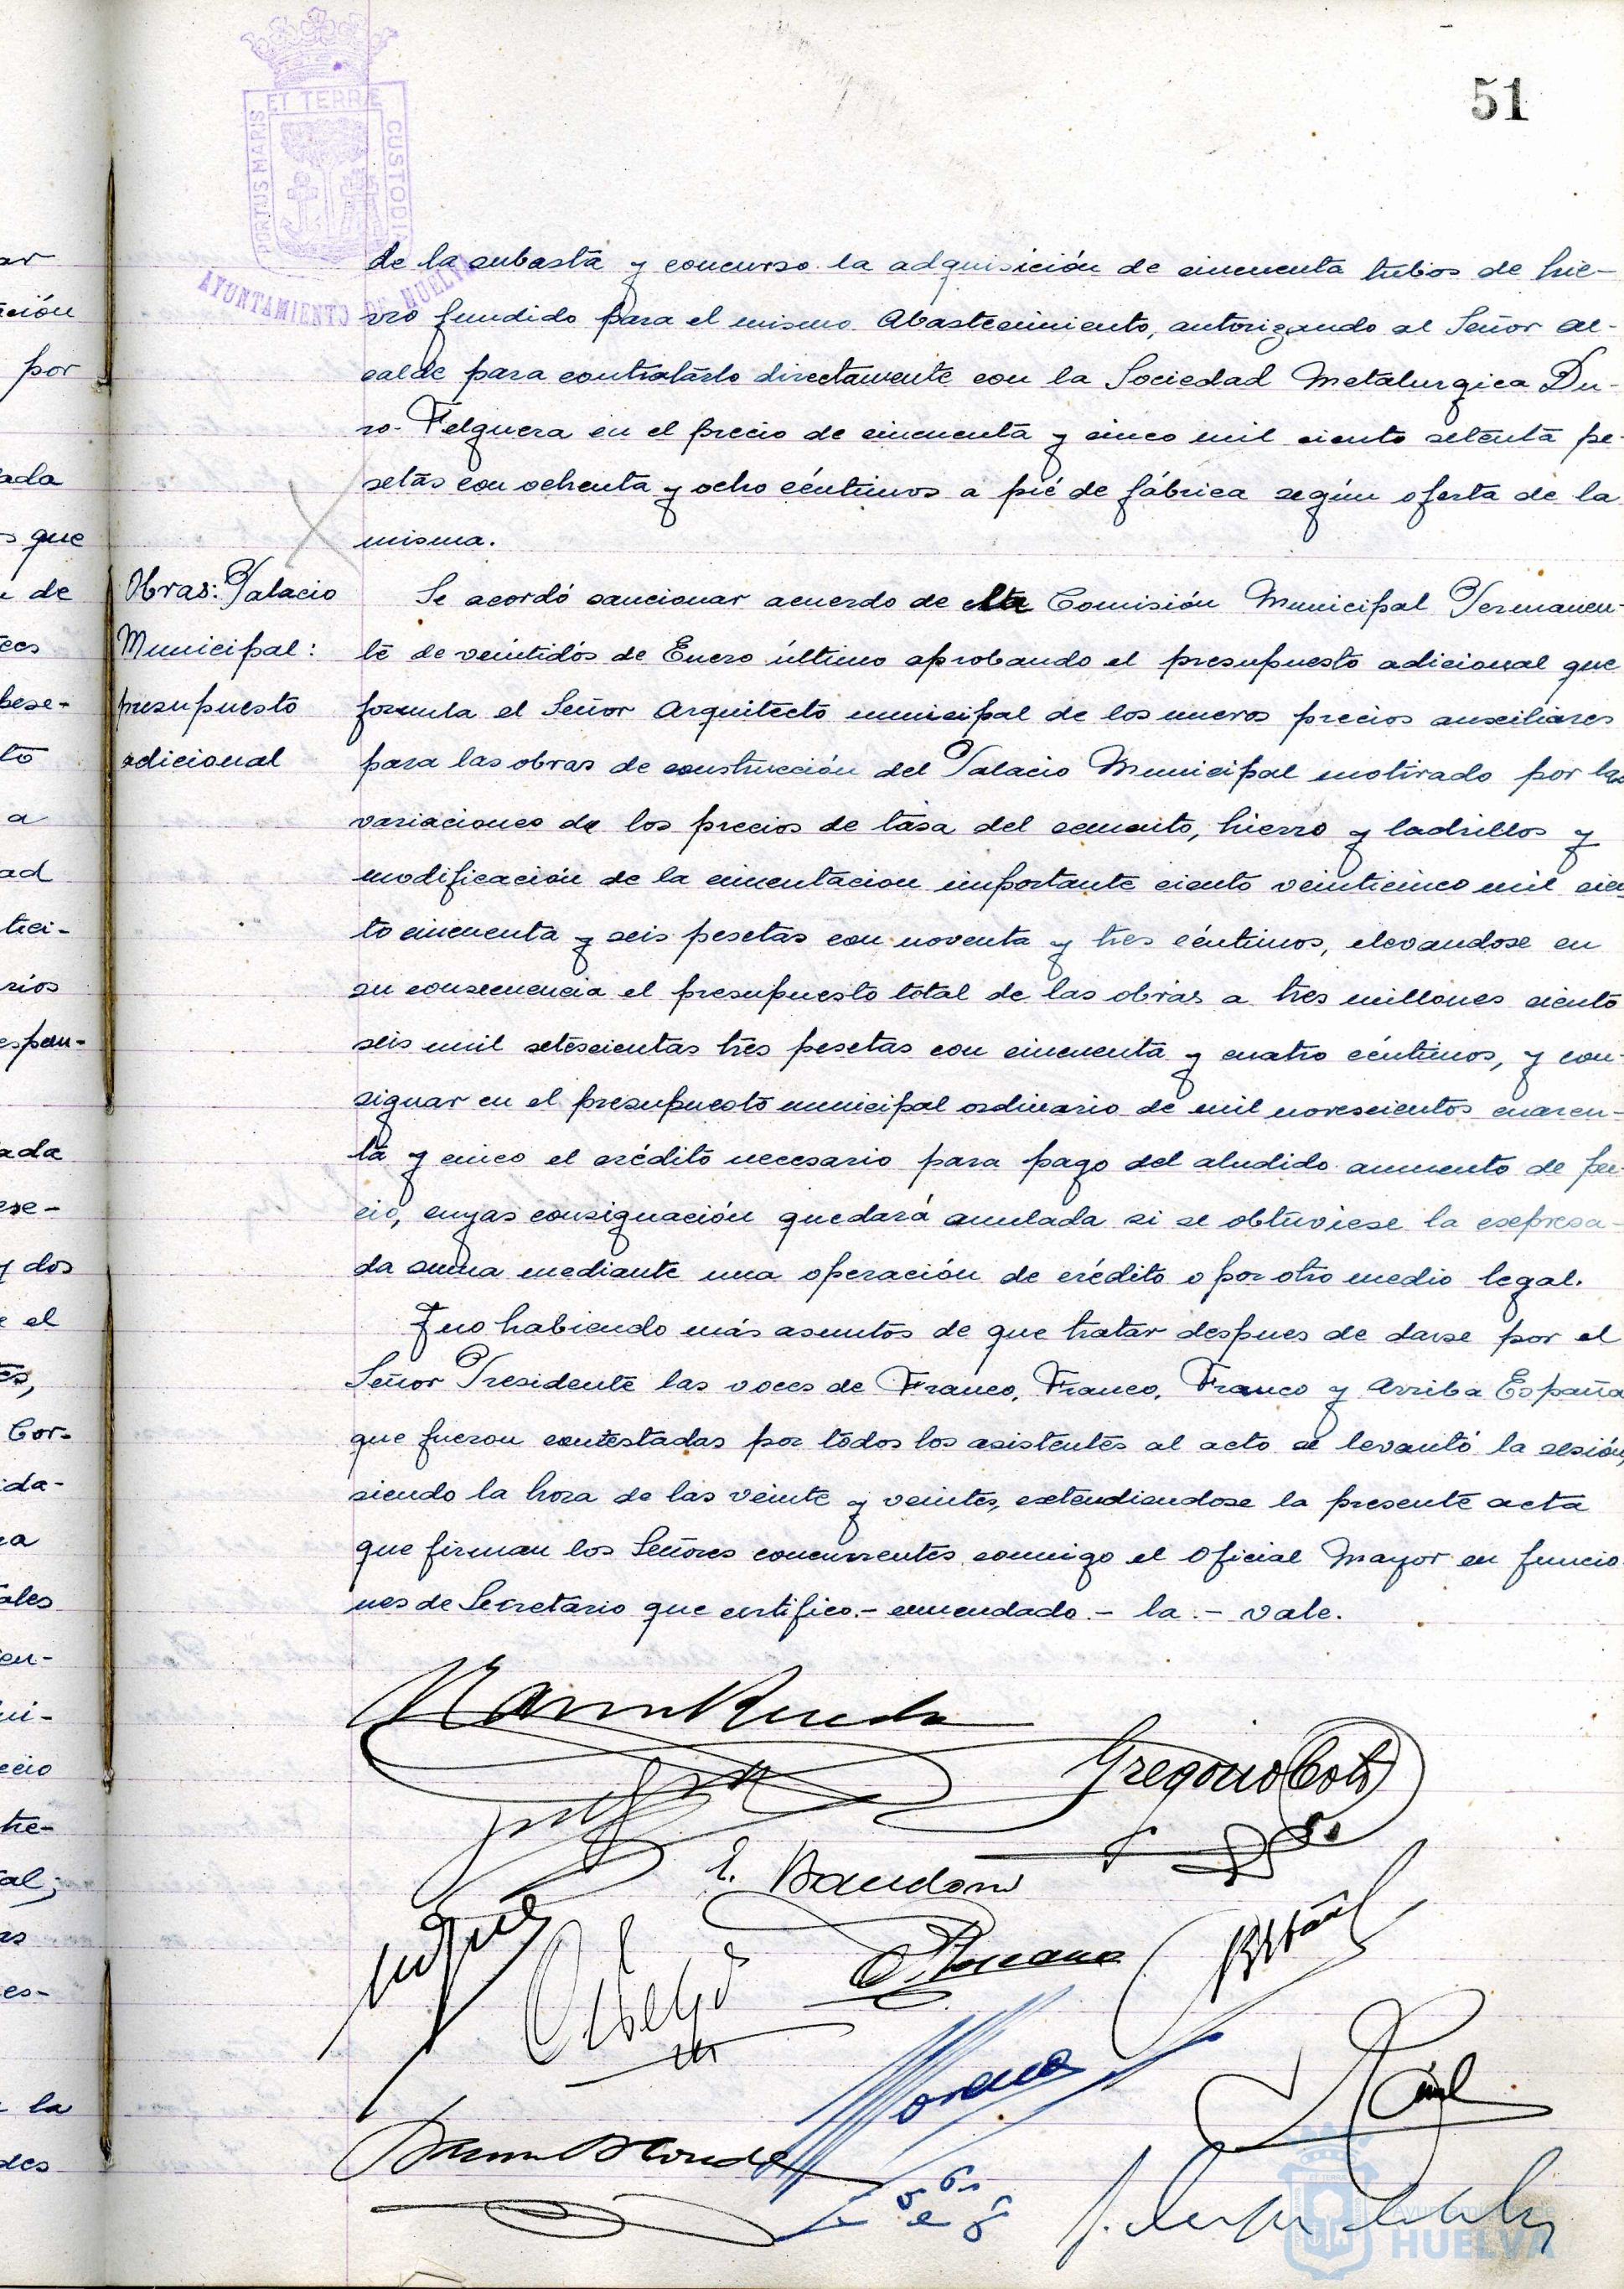 51
PORTUS MARIS ET TERRÆ CUSTODIA
AYUNTAMIENTO DE HUELVA
de la subasta y concurso la adquisición de cincuenta tubos de hie-
rro fundido para el mismo Abastecimiento, autorizando al Señor Al-
calde para contratarlo directamente con la Sociedad Metalurgica Du-
ro-Felguera en el precio de cincuenta y cinco mil ciento setenta pe-
setas con ochenta y ocho céntimos a pié de fábrica según oferta de la
misma.
Obras: Palacio
Municipal:
presupuesto
adicional
Se acordó sancionar acuerdo de la Comisión Municipal Permanen-
te de veintidós de Enero último aprobando el presupuesto adicional que
formula el Señor Arquitecto municipal de los nuevos precios auxiliares
para las obras de construcción del Palacio Municipal motivado por las
variaciones de los precios de tasa del cemento, hierro y ladrillos y
modificación de la cimentacion importante ciento veinticinco mil cien
to cincuenta y seis pesetas con noventa y tres céntimos, elevandose en
su consecuencia el presupuesto total de las obras a tres millones ciento
seis mil setescientas tres pesetas con cincuenta y cuatro céntimos, y con-
signar en el presupuesto municipal ordinario de mil novescientos cuaren-
ta y cinco el crédito necesario para pago del aludido aumento de pre-
cio, cuyas consignación quedará anulada si se obtuviese la expresa-
da suma mediante una operación de crédito o por otro medio legal.
Y no habiendo más asuntos de que tratar despues de darse por el
Señor Presidente las voces de Franco, Franco, Franco y Arriba España
que fueron contestadas por todos los asistentes al acto se levantó la sesión,
siendo la hora de las veinte y veintes, extendiendose la presente acta
que firman los Señores concurrentes conmigo el Oficial Mayor en funcio
nes de Secretario que certifico.- enmendado.- la.- vale.
Gregorio
E.
Ayuntamiento de
HUELVA
ar
ción
por
ada
s que
de
bese-
to
a
ad
tici-
rios
espon-
ada
ese-
y dos
e el
Cor-
ida-
ales
en-
ecio
tre-
al;
es-
la
des